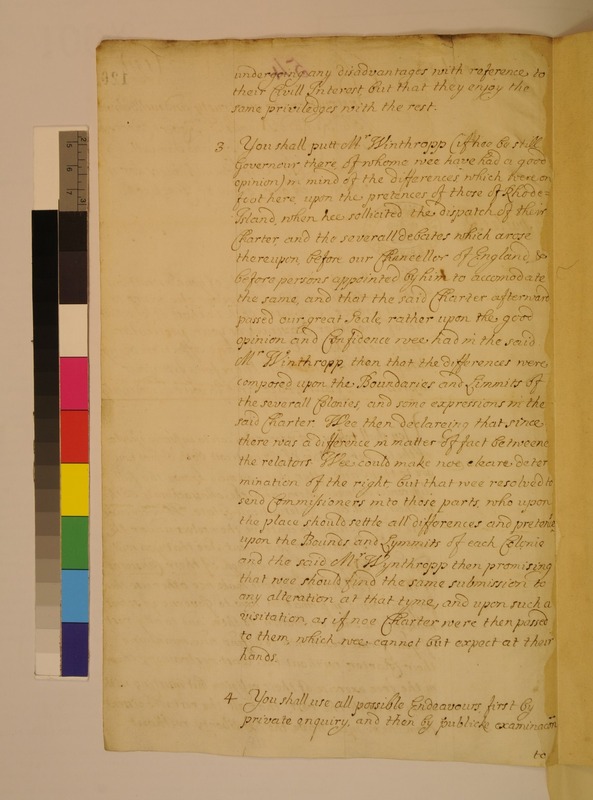 undergoing any disadvantages with reference to
their Civill Interest, but that they enjoy the
same priviledges with the rest.
3 You shall putt Mr Winthropp (if hee be still
Governour there, of whome wee have had a good
opinion) in mind of the differences which were on
foot here, upon the pretences of those of Rhode=
Island, when hee sollicited the dispatch of their
Charter, and the severall debates which arose
thereupon, before our Chancellor of England, &
before persons appointed by him to accomodate
the same, and that the said Charter afterward
passed our great Seale, rather upon the good
opinion and Confidence wee had in the said
Mr Winthropp, then that the differences were
composed upon the Boundaries and Limmits of
the severall Colonies, and some expressions in the
said Charter. Wee then declareing that since
there was a difference in matter of fact betweene
the relators. Wee could make noe cleare deter
mination of the right, but that wee resolved to
send Commissioners into those parts, who upon
the place should settle all differences and pretences
upon the Bounds and Lymmits of each Colonie
and the said Mr Wynthropp then promising
that wee should find the same submission to
any alteration at that tyme, and upon such a
visitation, as if noe Charter were then passed
to them, which wee cannot but expect at their
hands.
4 You shall use all possible Endeavours, first by
private enquiry, and then by publicke examinacon